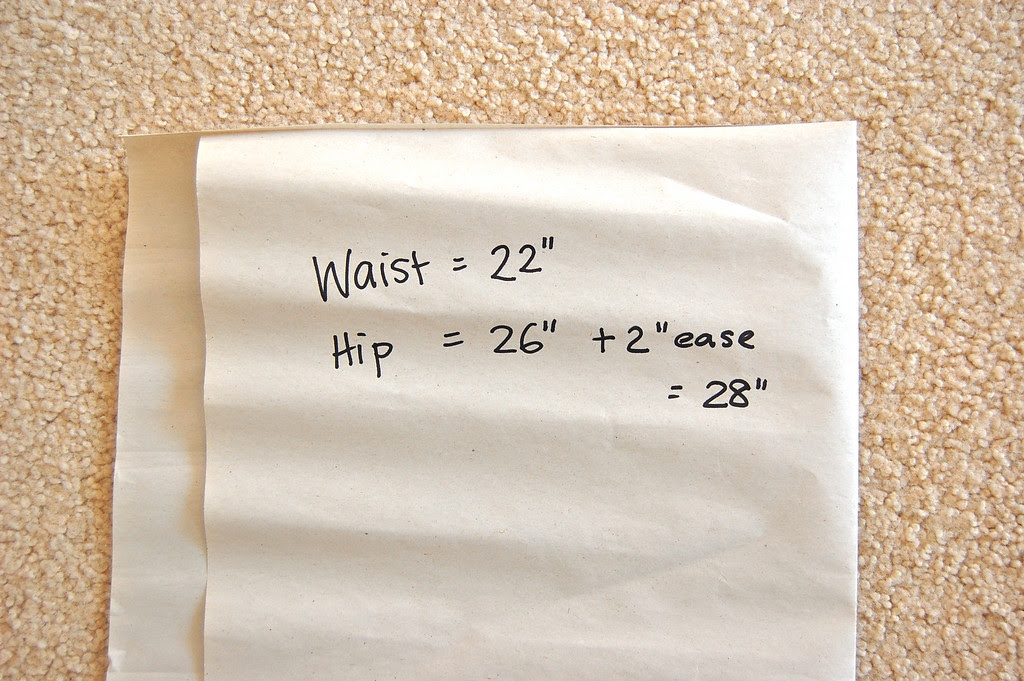 Waist = 22"
Hip = 26" + 2" ease
= 28"